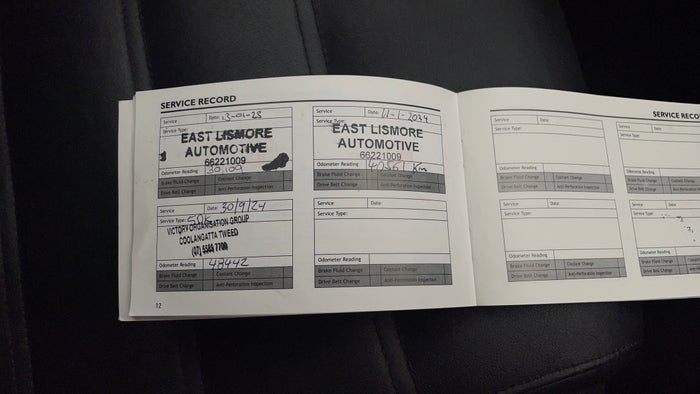 SERVICE RECORD
Service Date: 13-01-23
Service Type:
EAST LISMORE
AUTOMOTIVE
66221009
Odometer Reading 30,109
Brake Fluid Change Coolant Change
Drive Belt Change Anti-Perforation Inspection
Service Date: 11-1-2024
Service Type:
EAST LISMORE
AUTOMOTIVE
66221009
Odometer Reading Km
Brake Fluid Change Coolant Change
Drive Belt Change Anti-Perforation Inspection
Service Date: 30/9/24
Service Type: 50K
VICTORY ORGANISATION GROUP
COOLANGATTA TWEED
Odometer Reading 48442
Brake Fluid Change Coolant Change
Drive Belt Change Anti-Perforation Inspection
Service Date:
Service Type:
Odometer Reading
Brake Fluid Change Coolant Change
Drive Belt Change Anti-Perforation Inspection
12
SERVICE RECO
Service Date:
Service Type:
Odometer Reading
Brake Fluid Change Coolant Change
Drive Belt Change Anti-Perforation Inspection
Service Date:
Service Type:
Odometer Reading
Brake Fluid Change Coolant Change
Drive Belt Change Anti-Perforation Inspection
Service Date:
Service Type:
Odometer Reading
Brake Fluid Change
Drive Belt Change
Service Date:
Service Type:
Odometer Reading
Brake Fluid Change
Drive Belt Change